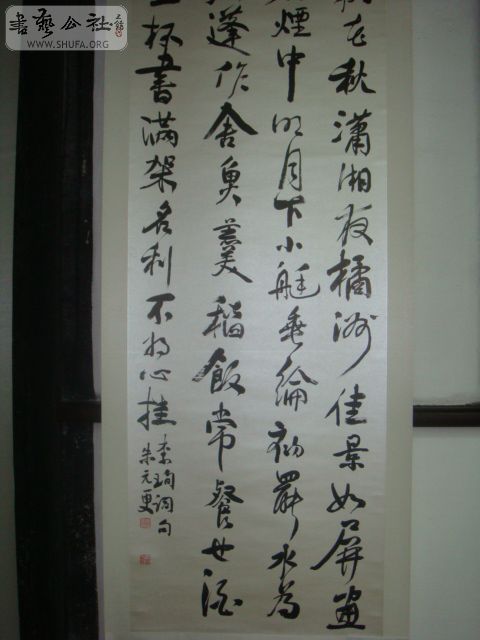 書藝公社
WWW.SHUFA.ORG
花秋瀟湘夜橘洲佳景如屏畫
煙中明月下小艇垂綸初罷水為
蓬作舍魚羹稻飯常餐也酒
杯書滿架名利不將心挂
李珣詞句
朱元更